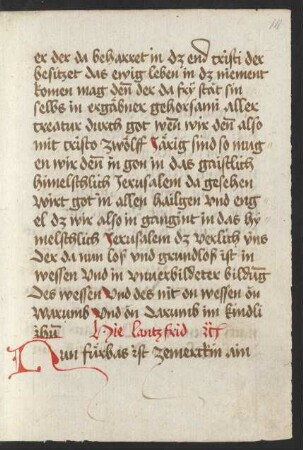 er der da beharret in dz end cristi der
besitzet das ewig leben in dz niement
komen mag deñ der da fry stăt sin
selbs in ergăbner gehorsami aller
creatur durch got weñ wir deñ also
mit cristo zwŏlff Jărig sind so mug
en wir deñ in gon in das gaistlich
hymelsthlich Jerusalem da gesehen
wirt got in allen hailgen vnd eng
el dz wir also in gangint in das hy
melsthlich Jerusalem dz verlich ṽns
der da nun loß vnd grundloß ist in
wessen vnd in vnuerbildeter bildũg
des wessen vnd des nit on wessen ŏn
warumb vnd ŏn darumb im kindli
Hie lantzfrid
Nun fürbas ist zemerckin am